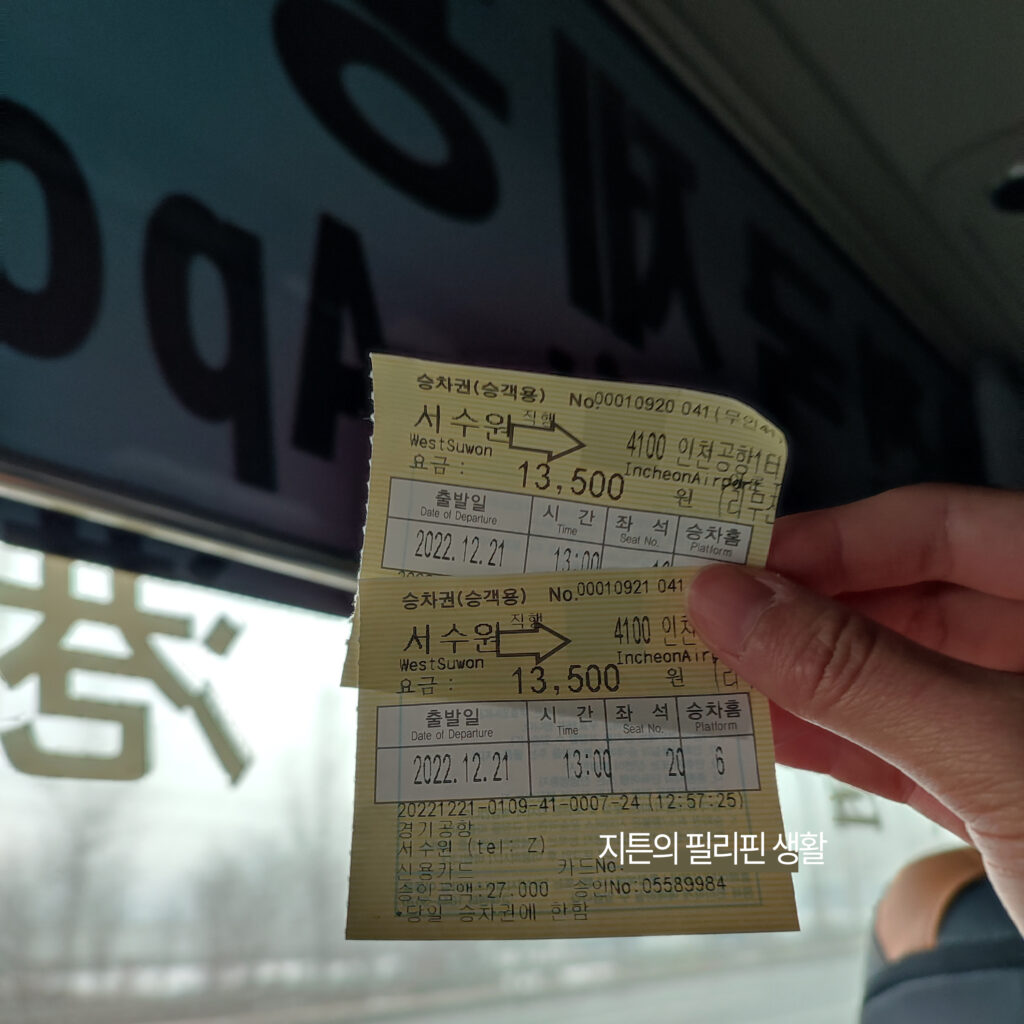 승차권(승객용) No.00010920 041(무인
서수원 직행 4100 인천공항1터
WestSuwon IncheonAirport
요금 : 13,500 원
출발일 시 간 좌 석 승차홈
Date of Departure Time Seat No. Platform
2022.12.21 13:00
승차권(승객용) No.00010921 041
서수원 직행 4100 인천
WestSuwon IncheonAirp
요금 : 13,500 원
출발일 시 간 좌 석 승차홈
Date of Departure Time Seat No. Platform
2022.12.21 13:00 20 6
20221221-0109-41-0007-24 (12:57:25)
경기공항
서수원 (tel: Z)
신용카드 카드No.
승인금액:27.000 승인No:05589984
*당일 승차권에 한함
지튼의 필리핀 생활
港